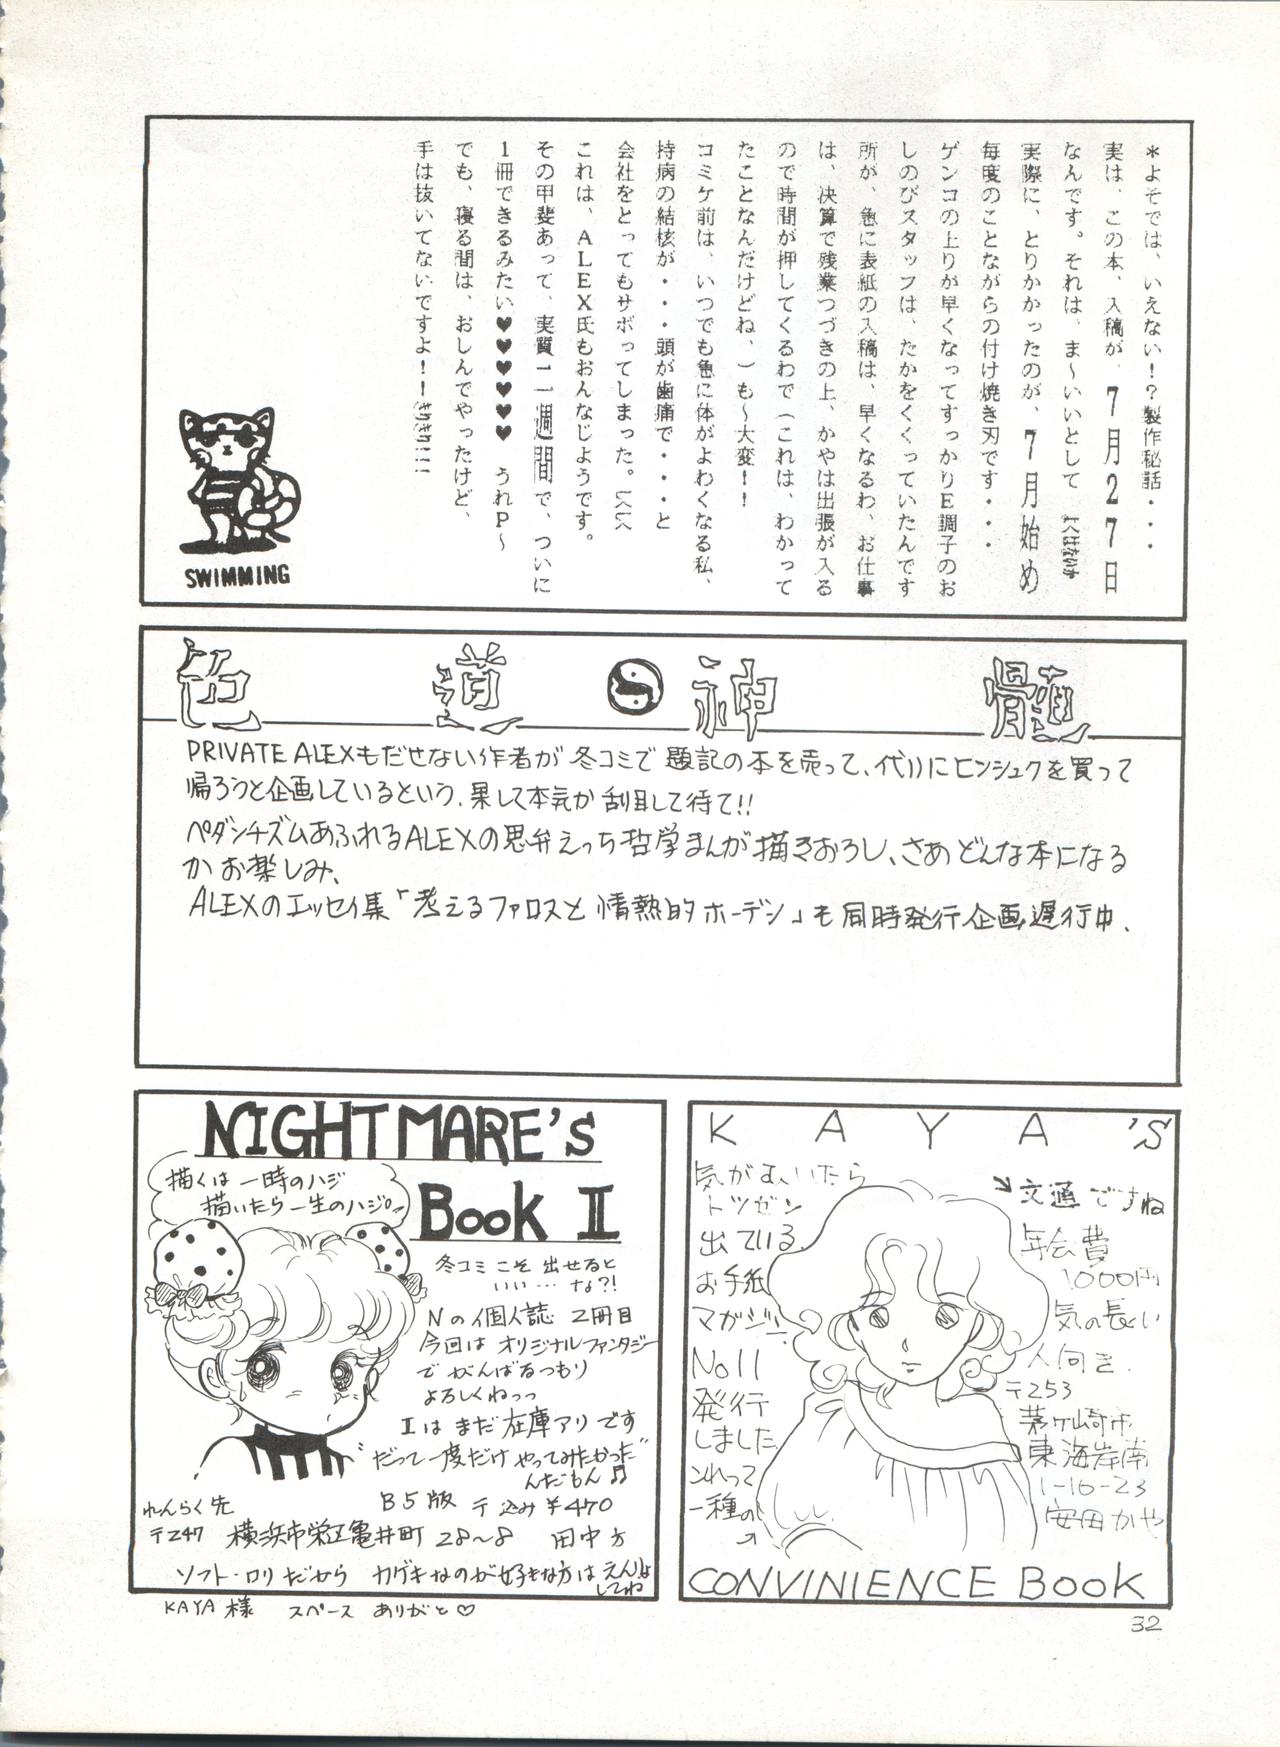 *よそでは、いえない!?製作秘話・・・
実は、この本、入稿が、7月27日
なんです。それは、ま〜いいとして
実際に、とりかかったのが、7月始め
毎度のことながらの付け焼き刃です・・・
ゲンコの上りが早くなってすっかりE調子のお
しのびスタッフは、たかをくくっていたんです
所が、急に表紙の入稿は、早くなるわ、お仕事
は、決算で残業つづきの上、かやは出張が入る
ので時間が押してくるわで(これは、わかって
たことなんだけどね、)も〜大変!!
コミケ前は、いつでも急に体がよわくなる私、
持病の結核が・・・頭が歯痛で・・・と
会社をとってもサボってしまった。
これは、ALEX氏もおんなじようです。
その甲斐あって、実質二週間で、ついに
1冊できるみたい♥♥♥♥♥ うれP〜
でも、寝る間は、おしんでやったけど、
手は抜いてないですよ!!
SWIMMING
色道☯神髄
PRIVATE ALEXもだせない作者が冬コミで題記の本を売って、代りにヒンシュクを買って
帰ろうと企画しているという、果して本気か刮目して待て!!
ペダンチズムあふれるALEXの思弁えっち哲学まんが描きおろし、さあどんな本になる
かお楽しみ、
ALEXのエッセイ集「考えるファロスと情熱的ホーデン」も同時発行企画遅行中、
NIGHTMARE'S
Book II
描くは一時のハジ
描いたら一生のハジ。
冬コミこそ出せると
いい…な?!
Nの個人誌 2冊目
今回はオリジナルファンタジー
でがんばるつもり
よろしくねっっ
Iはまだ在庫アリです
"だって一度だけやってみたかった"
んだもん♫
B5版 〒込み¥470
れんらく先
〒247 横浜市栄区亀井町28〜8 田中方
ソフト・ロリだから カゲキなのが好きな方はえんりょ
してね
KAYA様 スペース ありがと♡
KAYA'S
気がすいたら
トツゼン
出ている
お手紙
マガジン
No11
発行
しました
これって
一種の
↘文通ですね
年会費
1000円
気の長い
人向き.
〒253
茅ヶ崎市
東海岸南
1-10-23
安田かや
CONVINIENCE Book
32